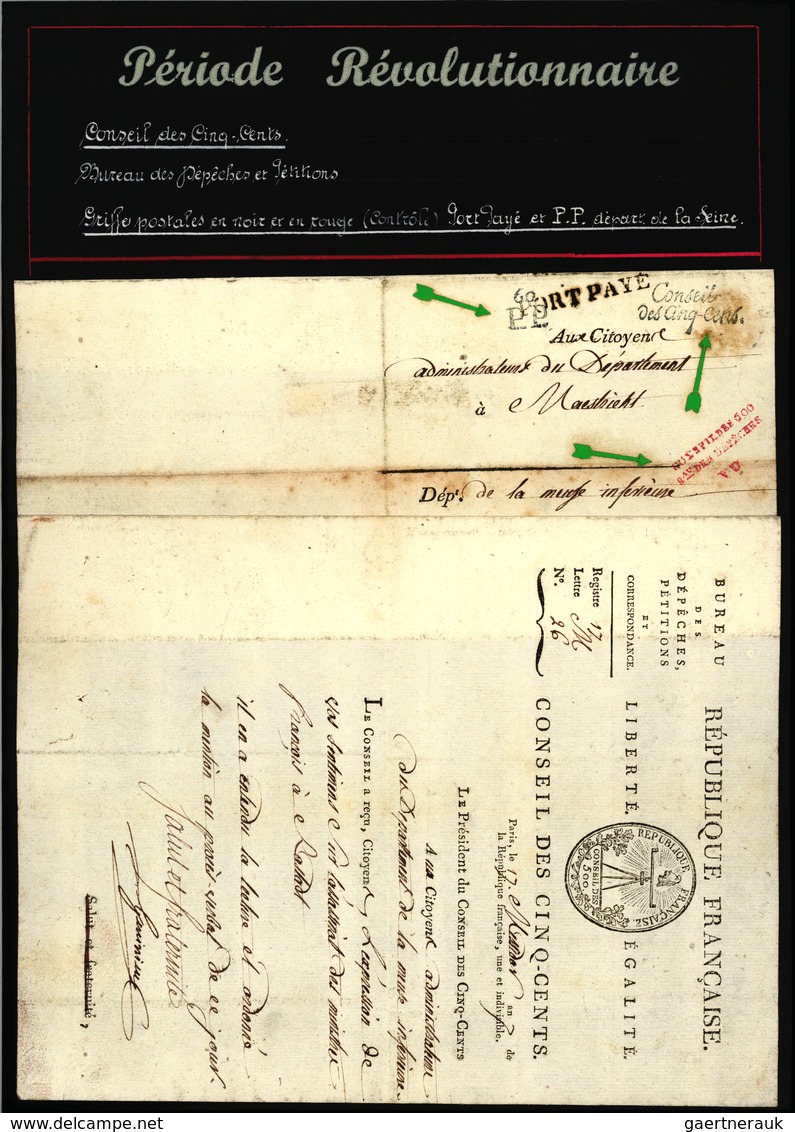 Période Révolutionnaire
Conseil des Cinq-Cents.
Bureau des Dépêches et Pétitions
Griffes postales en noir et en rouge (Contrôle) Port Payé et P.P. départ. de la Seine.
60
P.P.
PORT PAYÉ
Conseil
des Cinq-Cens.
Aux Citoyens
administrateurs du Département
à Maestricht
CONSEIL DES 500
Bau DES DEPÊCHES
VU
Dépt. de la meuse inférieure
BUREAU
DES
DÉPÊCHES,
PÉTITIONS
ET
CORRESPONDANCE.
Registre 17
Lettre M
No. 26
RÉPUBLIQUE FRANÇAISE.
LIBERTÉ. ÉGALITÉ.
REPUBLIQUE FRANÇAISE
CONSEIL DES
500
CONSEIL DES CINQ-CENTS.
Paris, le 17 an 7 de
la République française, une et indivisible.
LE Président du CONSEIL DES CINQ-CENTS
Aux Citoyens administrateurs
du Département de la meuse inférieure
LE CONSEIL a reçu, Citoyens, l'expression de
vos sentimens sur l'assassinat des ministres
français à Rastadt
il en a entendu la lecture et ordonné
la mention au procès-verbal de ce jour.
Salut et fraternité
Salut et fraternité,
gaertnerauk
gaertnerauk.com